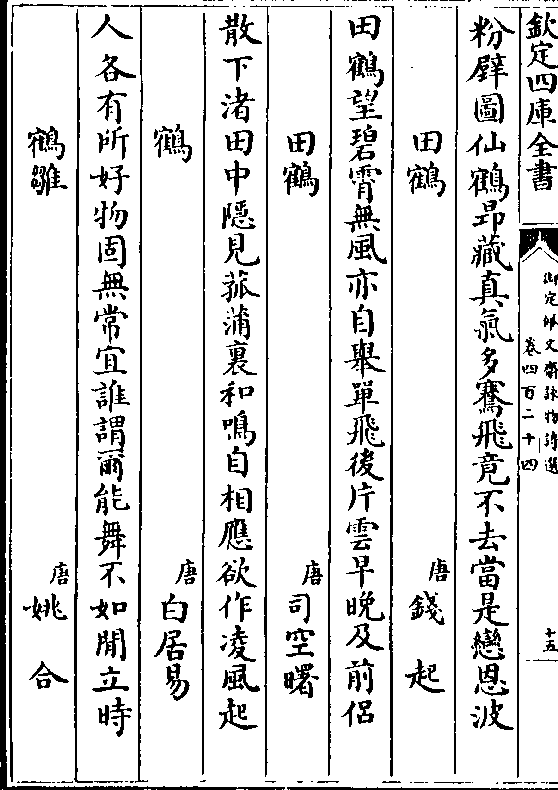 欽定四庫全書
御定佩文齋詠物詩選
卷四百二十四
十五
粉壁圖仙鶴昂藏真氣多鶱飛竟不去當是戀恩波
田鶴 唐 錢起
田鶴望碧霄無風亦自舉單飛後片雲早晚及前侶
田鶴 唐 司空曙
散下渚田中隱見菰蒲裏和鳴自相應欲作凌風起
鶴 唐 白居易
人各有所好物固無常宜誰謂爾能舞不如閒立時
鶴雛 唐 姚合